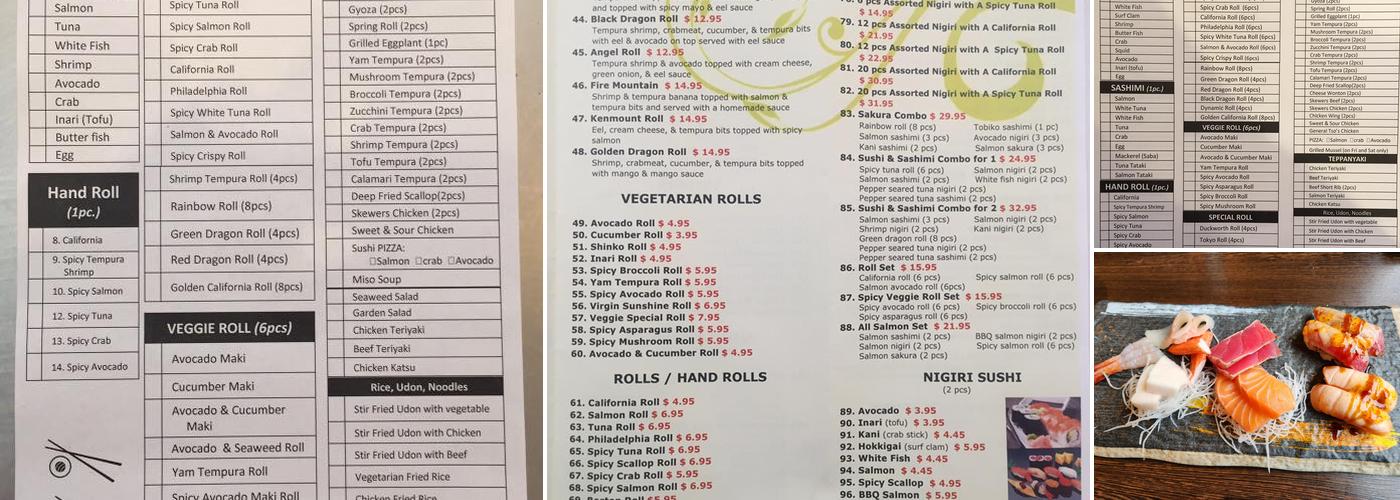 Salmon
Tuna
White Fish
Shrimp
Avocado
Crab
Inari (Tofu)
Butter fish
Egg
Hand Roll
(1pc.)
8. California
9. Spicy Tempura
Shrimp
10. Spicy Salmon
12. Spicy Tuna
13. Spicy Crab
14. Spicy Avocado
Spicy Tuna Roll
Spicy Salmon Roll
Spicy Crab Roll
California Roll
Philadelphia Roll
Spicy White Tuna Roll
Salmon & Avocado Roll
Spicy Crispy Roll
Shrimp Tempura Roll (4pcs)
Rainbow Roll (8pcs)
Green Dragon Roll (4pcs)
Red Dragon Roll (4pcs)
Golden California Roll (8pcs)
VEGGIE ROLL (6pcs)
Avocado Maki
Cucumber Maki
Avocado & Cucumber
Maki
Avocado & Seaweed Roll
Yam Tempura Roll
Spicy Avocado Maki Roll
Gyoza (2pcs)
Spring Roll (2pcs)
Grilled Eggplant (1pc)
Yam Tempura (2pcs)
Mushroom Tempura (2pcs)
Broccoli Tempura (2pcs)
Zucchini Tempura (2pcs)
Crab Tempura (2pcs)
Shrimp Tempura (2pcs)
Tofu Tempura (2pcs)
Calamari Tempura (2pcs)
Deep Fried Scallop(2pcs)
Skewers Chicken (2pcs)
Sweet & Sour Chicken
Sushi PIZZA:
□Salmon □crab □Avocado
Miso Soup
Seaweed Salad
Garden Salad
Chicken Teriyaki
Beef Teriyaki
Chicken Katsu
Rice, Udon, Noodles
Stir Fried Udon with vegetable
Stir Fried Udon with Chicken
Stir Fried Udon with Beef
Vegetarian Fried Rice
Chicken Fried Rice
and topped with spicy mayo & eel sauce
44. Black Dragon Roll $ 12.95
Tempura shrimp, crabmeat, cucumber, & tempura bits
with eel & avocado on top served with eel sauce
45. Angel Roll $ 12.95
Tempura shrimp & avocado topped with cream cheese,
green onion, & eel sauce
46. Fire Mountain $ 14.95
Shrimp & tempura banana topped with salmon &
tempura bits and served with a homemade sauce
47. Kenmount Roll $ 14.95
Eel, cream cheese, & tempura bits topped with spicy
salmon
48. Golden Dragon Roll $ 14.95
Shrimp, crabmeat, cucumber, & tempura bits topped
with mango & mango sauce
VEGETARIAN ROLLS
49. Avocado Roll $ 4.95
50. Cucumber Roll $ 3.95
51. Shinko Roll $ 4.95
52. Inari Roll $ 4.95
53. Spicy Broccoli Roll $ 5.95
54. Yam Tempura Roll $ 5.95
55. Spicy Avocado Roll $ 5.95
56. Virgin Sunshine Roll $ 6.95
57. Veggie Special Roll $ 7.95
58. Spicy Asparagus Roll $ 5.95
59. Spicy Mushroom Roll $ 5.95
60. Avocado & Cucumber Roll $ 4.95
ROLLS / HAND ROLLS
61. California Roll $ 4.95
62. Salmon Roll $ 6.95
63. Tuna Roll $ 6.95
64. Philadelphia Roll $ 5.95
65. Spicy Tuna Roll $ 5.95
66. Spicy Scallop Roll $ 6.95
67. Spicy Crab Roll $ 5.95
68. Spicy Salmon Roll $ 6.95
pcs Assorted Nigiri with A Spicy Tuna Roll
$ 14.95
79. 12 pcs Assorted Nigiri with A California Roll
$ 21.95
80. 12 pcs Assorted Nigiri with A Spicy Tuna Roll
$ 22.95
81. 20 pcs Assorted Nigiri with A California Roll
$ 30.95
82. 20 pcs Assorted Nigiri with A Spicy Tuna Roll
$ 31.95
83. Sakura Combo $ 29.95
Rainbow roll (8 pcs) Tobiko sashimi (1 pc)
Salmon sashimi (2 pcs) Avocado nigiri (3 pcs)
Kani sashimi (2 pcs) Salmon sakura (3 pcs)
84. Sushi & Sashimi Combo for 1 $ 24.95
Spicy tuna roll (6 pcs) Salmon nigiri (2 pcs)
Salmon sashimi (2 pcs) White fish nigiri (2 pcs)
Pepper seared tuna nigiri (2 pcs)
Pepper seared tuna sashimi (2 pcs)
85. Sushi & Sashimi Combo for 2 $ 32.95
Salmon sashimi (3 pcs) Salmon nigiri (2 pcs)
Shrimp nigiri (2 pcs) Kani nigiri (2 pcs)
Green dragon roll (8 pcs)
Pepper seared tuna nigiri (2 pcs)
Pepper seared tuna sashimi (2 pcs)
86. Roll Set $ 15.95
California roll (6 pcs) Spicy salmon roll (6 pcs)
Salmon avocado roll (6pcs)
87. Spicy Veggie Roll Set $ 15.95
Spicy avocado roll (6 pcs) Spicy broccoli roll (6 pcs)
Spicy asparagus roll (6 pcs)
88. All Salmon Set $ 21.95
Salmon sashimi (2 pcs) BBQ salmon nigiri (2 pcs)
Salmon nigiri (2 pcs) Spicy salmon roll (6 pcs)
Salmon sakura (2 pcs)
NIGIRI SUSHI
(2 pcs)
89. Avocado $ 3.95
90. Inari (tofu) $ 3.95
91. Kani (crab stick) $ 4.45
92. Hokkigai (surf clam) $ 5.95
93. White Fish $ 4.45
94. Salmon $ 4.45
95. Spicy Scallop $ 4.95
96. BBQ Salmon $ 5.95
White Fish
Surf Clam
Shrimp
Butter Fish
Crab
Squid
Avocado
Inari (tofu)
Egg
SASHIMI (1pc.)
Salmon
White Tuna
White Fish
Tuna
Crab
Egg
Mackerel (Saba)
Tuna Tataki
Salmon Tataki
HAND ROLL (1pc.)
California
Spicy Tempura Shrimp
Spicy Salmon
Spicy Tuna
Spicy Crab
Spicy Avocado
Spicy Crab Roll (6pcs)
California Roll (6pcs)
Philadelphia Roll (6pcs)
Spicy White Tuna Roll (6pcs)
Salmon & Avocado Roll (6pcs)
Spicy Crispy Roll (6pcs)
Rainbow Roll (8pcs)
Green Dragon Roll (4pcs)
Red Dragon Roll (4pcs)
Black Dragon Roll (4pcs)
Dynamic Roll (4pcs)
Golden California Roll (8pcs)
VEGGIE ROLL (6pcs)
Avocado Maki
Cucumber Maki
Avocado & Cucumber Maki
Yam Tempura Roll
Spicy Avocado Roll
Spicy Asparagus Roll
Spicy Broccoli Roll
Spicy Mushroom Roll
SPECIAL ROLL
Duckworth Roll (4pcs)
Tokyo Roll (4pcs)
Spring Roll (2pcs)
Grilled Eggplant (1pc)
Yam Tempura (2pcs)
Mushroom Tempura (2pcs)
Broccoli Tempura (2pcs)
Zucchini Tempura (2pcs)
Crab Tempura (2pcs)
Shrimp Tempura (2pcs)
Tofu Tempura (2pcs)
Calamari Tempura (2pcs)
Deep Fried Scallop(2pcs)
Cheese Wonton (2pcs)
Skewers Beef (2pcs)
Skewers Chicken (2pcs)
Chicken Wing (2pcs)
Sweet & Sour Chicken
General Tso's Chicken
PIZZA: □Salmon □crab □Avocado
Grilled Mussel (on Fri and Sat only)
TEPPANYAKI
Chicken Teriyaki
Beef Teriyaki
Beef Short Rib (2pcs)
Salmon Teriyaki
Chicken Katsu
Rice, Udon, Noodles
Stir Fried Udon with vegetable
Stir Fried Udon with Chicken
Stir Fried Udon with Beef